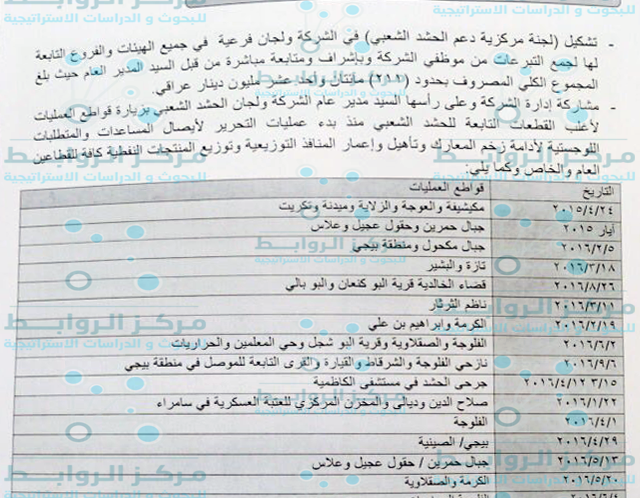 للبحوث و الدراسات الاستراتيجية
- تشكيل (لجنة مركزية دعم الحشد الشعبي) في الشركة ولجان فرعية في جميع الهيئات والفروع التابعة
لها لجمع التبرعات من موظفي الشركة وبإشراف ومتابعة مباشرة من قبل السيد المدير العام حيث بلغ
المجموع الكلي المصروف بحدود (٢١١) مائتان واحد عشر مليون دينار عراقي.
- مشاركة إدارة الشركة وعلى رأسها السيد مدير عام الشركة ولجان الحشد الشعبي بزيارة قواطع العمليات
لأغلب القطعات التابعة للحشد الشعبي منذ بدء عمليات التحرير لأيصال المساعدات والمتطلبات
اللوجستية لأدامة زخم المعارك وتأهيل وإعمار المنافذ التوزيعية وتوزيع المنتجات النفطية كافة للقطاعين
العام والخاص وكما يلي:
التاريخ قواطع العمليات
٢٠١٥/٤/٢٤ مكيشيفة والعوجة والزلاية وميدنة وتكريت
أيار ٢٠١٥ جبال حمرين وحقول عجيل وعلاس
٢٠١٦/٢/٥ جبال مكحول ومنطقة بيجي
٢٠١٦/٣/١٨ تازة والبشير
٢٠١٦/٨/٢٦ قضاء الخالدية قرية البو كنعان والبو بالي
٢٠١٦/٣/١١ ناظم الثرثار
٢٠١٦/٢/١٩ الكرمة وابراهيم بن علي
٢٠١٦/٦/٢ الفلوجة والصقلاوية وقرية البو شجل وحي المعلمين والحراريات
٢٠١٦/٩/٦ نازحي الفلوجة والشرقاط والقيارة والقرى التابعة للموصل في منطقة بيجي
٣/١٥ ٢٠١٦/٤/١٢ جرحى الحشد في مستشفى الكاظمية
٢٠١٦/١/٢٢ صلاح الدين وديالى والمخزن المركزي للعتبة العسكرية في سامراء
٢٠١٦/٤/١ الفلوجة
٢٠١٦/٤/٢٩ بيجي/ الصينية
٢٠١٦/٥/١٣ جبال حمرين / حقول عجيل وعلاس
٢٠١٦/٥/٢٠ الكرمة والصقلاوية
مركز الروابط
للبحوث و الدراسات الاستراتيجية